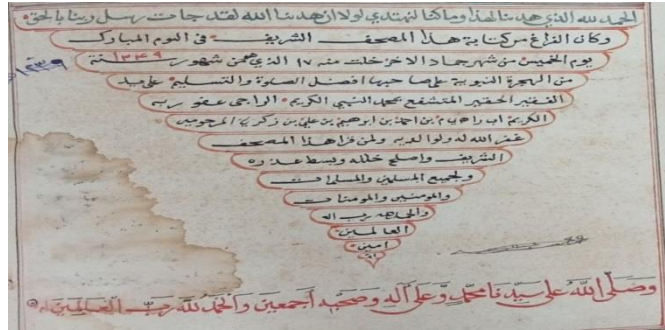 الحمد لله الذي هدىنا لهذا وما كنا لنهتدي لولا ان هدىنا الله لقد جات رسل ربنا بالحق
وكان الفراغ من كتابة هذا المصحف الشريف في اليوم المبارك
يوم الخميس من شهر جماد الاخر خلت منه ١٧ الذي هو من شهور سنة ١٣٤٩
من الهجرة النبوية على صاحبها افضل الصلوة والتسليم على يد
الفقير الحقير المتشفع بمحمد النبي الكريم الراجي عفو ربه
الكريم ابراهيم بن احمد بن ابرهيم بن علي بن زكري المرحومين
غفر الله له ولوالديه ولمن قرا هذا المصحف
الشريف واصلح خلله وبسط عذره
ولجميع المسلمين والمسلمات
والمومنين والمومنات
والحمد لله رب
العالمين
امين
وصلى الله على سيدنا محمد وعلى آله وصحبه أجمعين والحمد لله رب العالمين